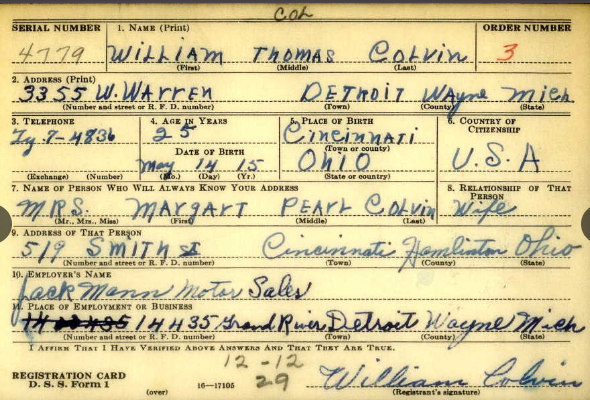 COL
SERIAL NUMBER 1. NAME (Print) ORDER NUMBER
4779 WILLIAM THOMAS COLVIN 3
(First) (Middle) (Last)
2. ADDRESS (Print)
3355 W. WARREN DETROIT Wayne Mich
(Number and street or R. F. D. number) (Town) (County) (State)
3. TELEPHONE 4. AGE IN YEARS 5. PLACE OF BIRTH 6. COUNTRY OF CITIZENSHIP
Ty. 7-4836 25 Cincinnati
(Town or county)
DATE OF BIRTH
May 14 15 OHIO U.S.A
(Exchange) (Number) (Mo.) (Day) (Yr.) (State or country)
7. NAME OF PERSON WHO WILL ALWAYS KNOW YOUR ADDRESS 8. RELATIONSHIP OF THAT PERSON
MRS. MARGART PEARL COLVIN Wife
(Mr., Mrs., Miss) (First) (Middle) (Last)
9. ADDRESS OF THAT PERSON
519 SMITH St Cincinnati Hamlinton Ohio
(Number and street or R. F. D. number) (Town) (County) (State)
10. EMPLOYER'S NAME
Jack Mann Motor Sales
11. PLACE OF EMPLOYMENT OR BUSINESS
14435 Grand River Detroit Wayne Mich
(Number and street or R. F. D. number) (Town) (County) (State)
I AFFIRM THAT I HAVE VERIFIED ABOVE ANSWERS AND THAT THEY ARE TRUE.
12-12
REGISTRATION CARD 29 William Colvin
D. S. S. Form 1 (over) 16—17105 (Registrant's signature)